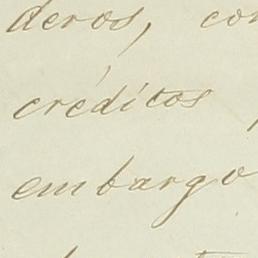 deros, co
créditos
embargo